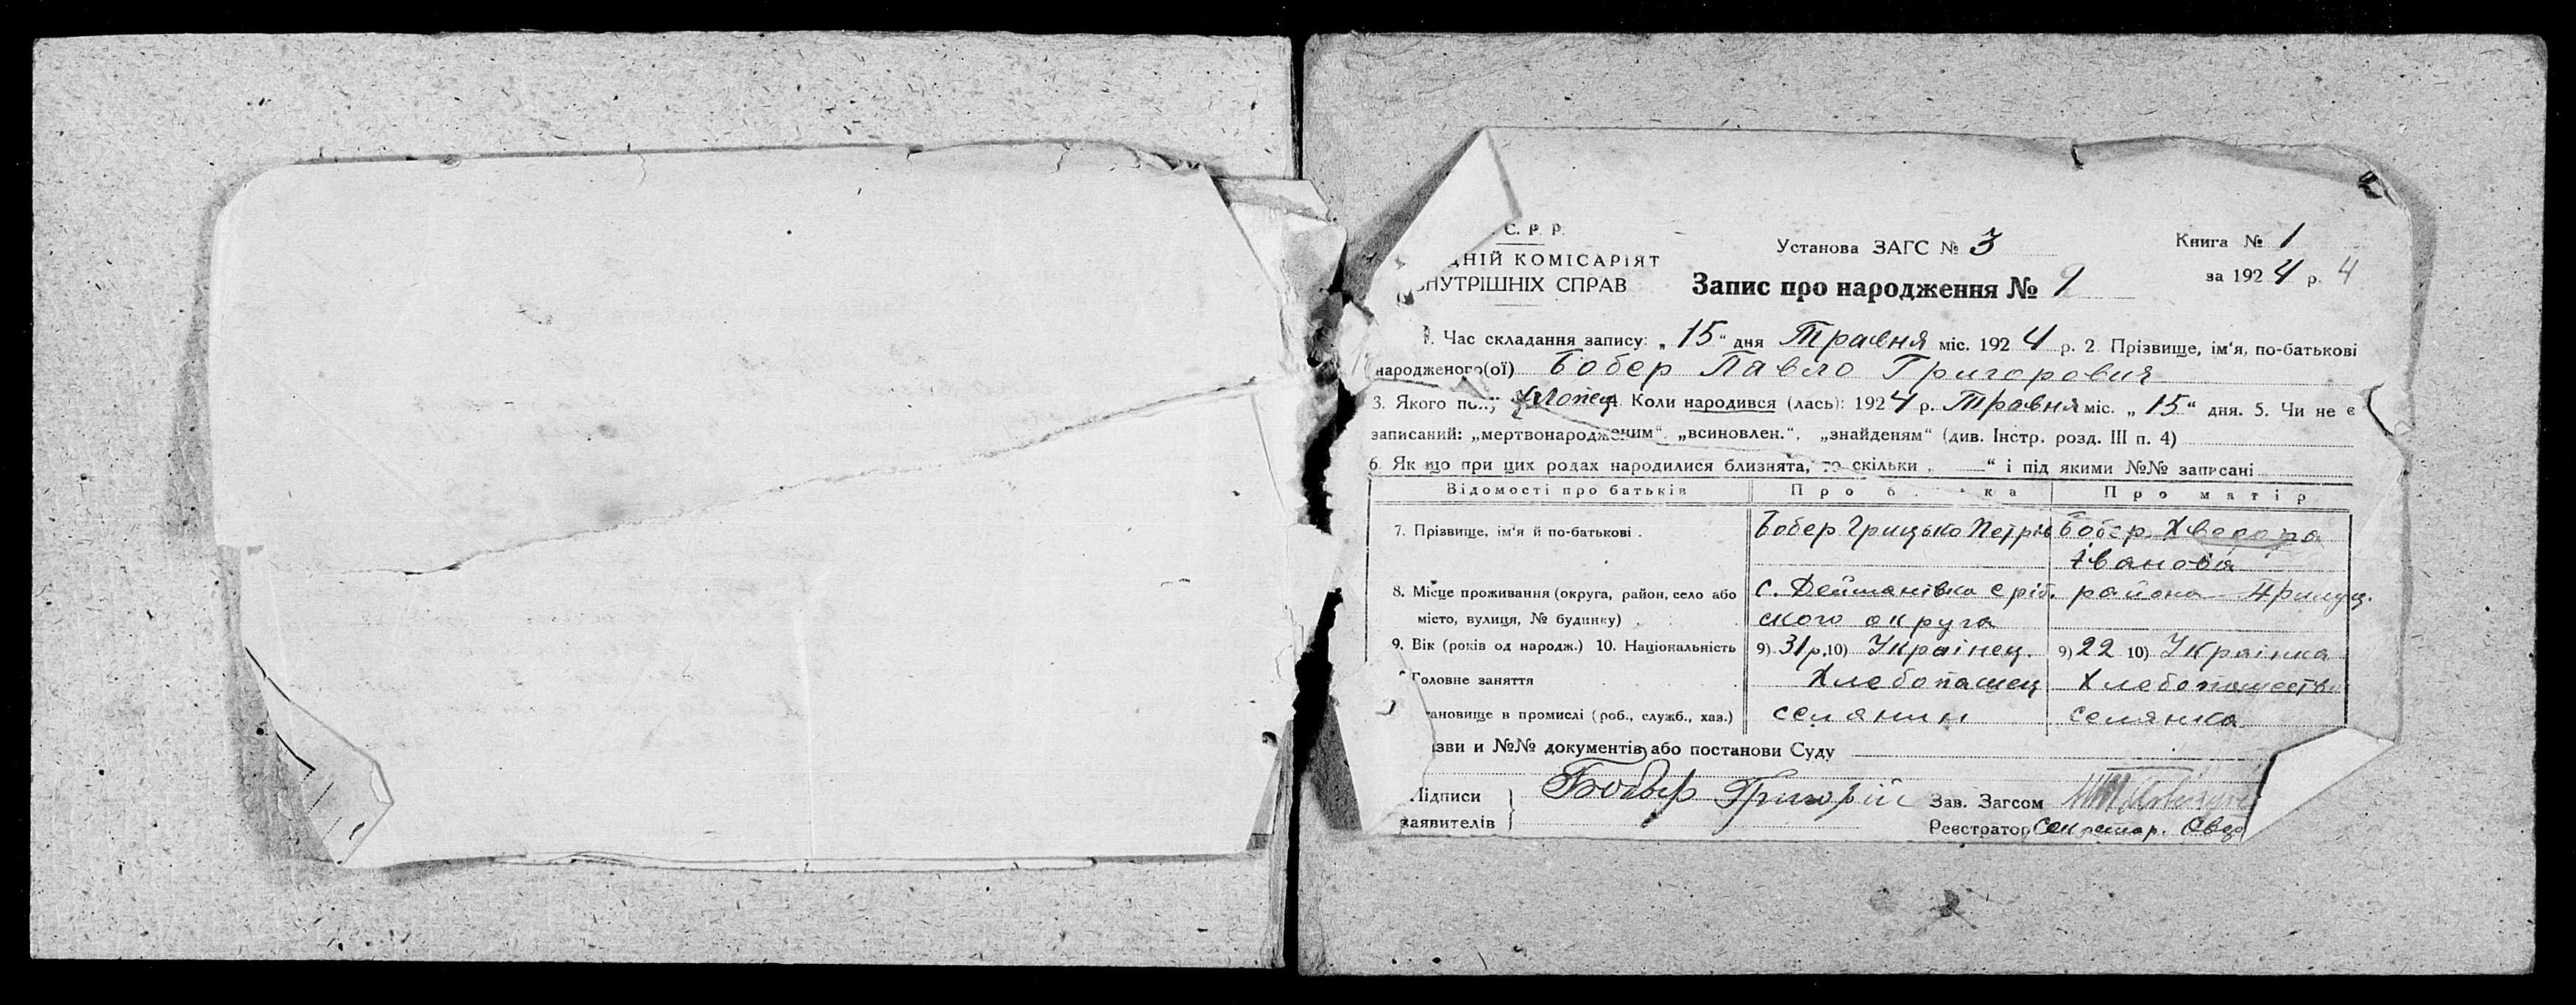 С. Р. Р.
ДНІЙ КОМІСАРІЯТ
ВНУТРІШНІХ СПРАВ
Установа ЗАГС № 3
Запис про народження № 9
Книга № 1
за 1924 р. 4
1. Час складання запису: „15“ дня Травня міс. 1924 р. 2. Прізвище, ім‘я, по-батькові
народженого(ої) Бобер Павло Григоровия
3. Якого полу Хлопец 4. Коли народився (лась): 1924 р. Травня міс. „15“ дня. 5. Чи не є
записаний: „мертвонародженим“, „всиновлен.“, „знайденям“ (див. Інстр. розд. III п. 4)
6. Як що при цих родах народилися близнята, то скільки „ “ і під якими №№ записані
Відомості про батьків Про б ка Про матір
7. Прізвище, ім‘я й по-батькові . Бобер Грицько Петрів Бобер Хведора
Іванова
8. Місце проживання (округа, район, село або с. Дейманівка сріб. района Прилуц.
місто, вулиця, № будинку) . ского округа
9. Вік (років од народж.) 10. Національність 9) 31 р. 10) Украінец. 9) 22 10) Украінка
Головне заняття Хлебопашец Хлебопашество
тановище в промислі (роб., служб., хаз.) селянин селянка
зви и №№ документів або постанови Суду
Підписи
заявителів
Бобыр Григорій
Зав. Загсом
Реєстратор Секретар.